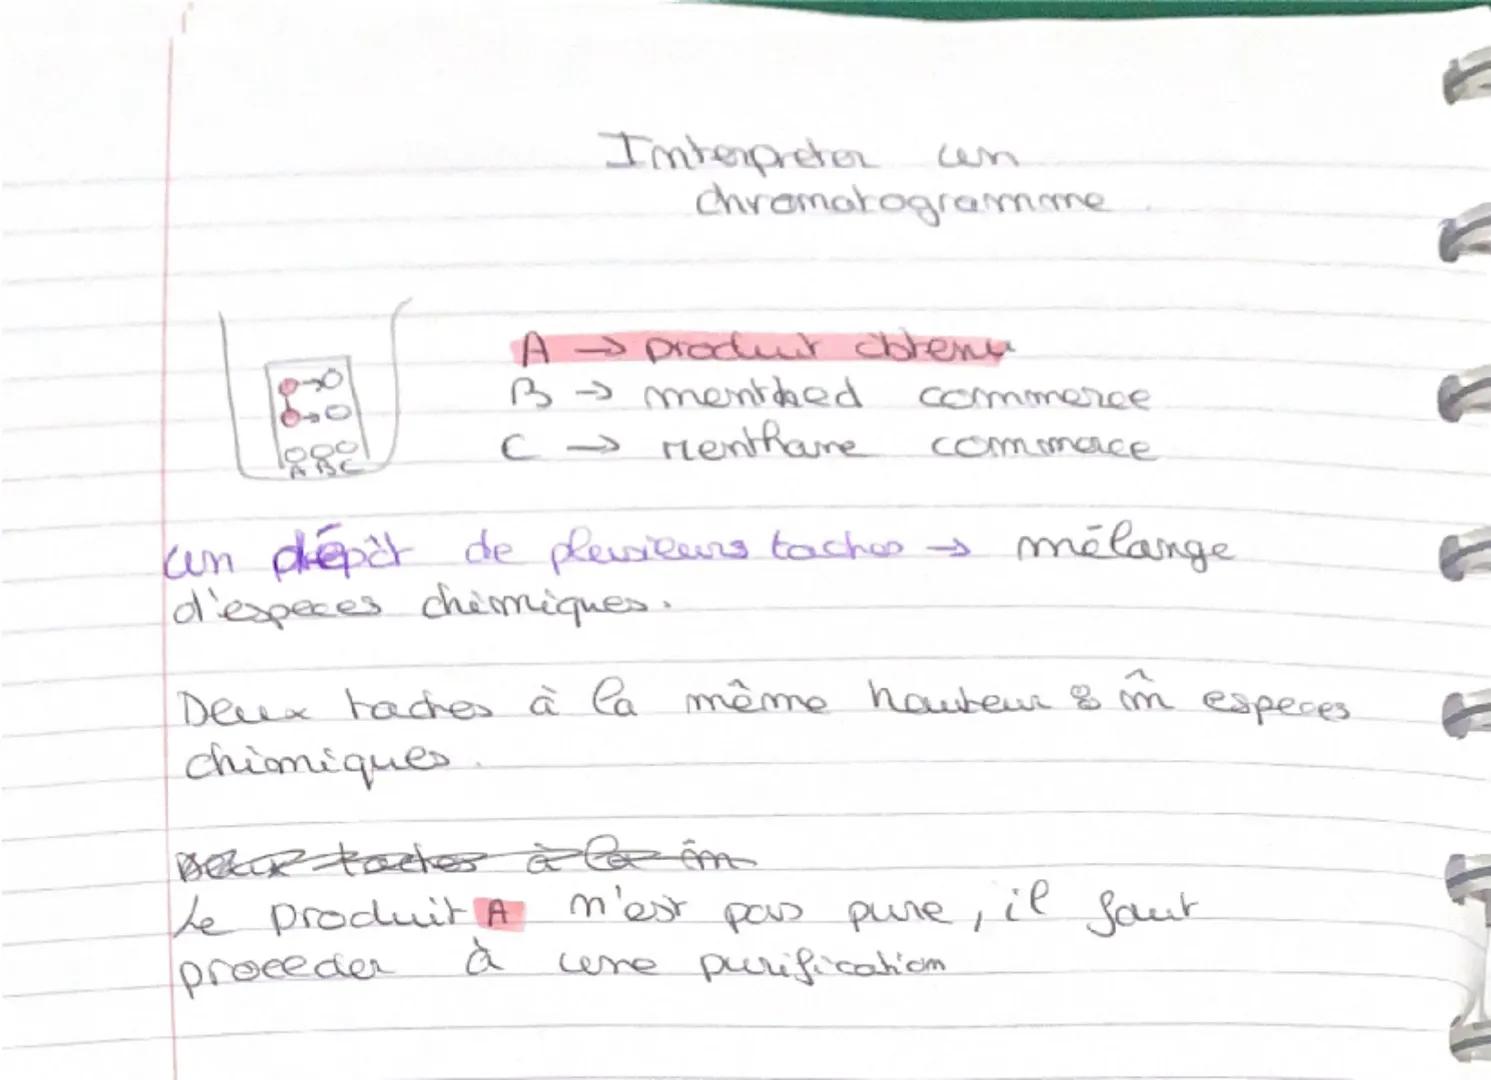 Interpreter un
chromatogramme
A → produit obtenu
B → menthed commerce
C → Menthane commerce
A B C
un dépôt de plusieurs taches → mélange
d'especes chimiques.
Deux taches à la même hauteur : m̂ especes
chimiques.
Deux taches à la m̂
Le produit A n'est pas pure, il faut
proceder à une purification